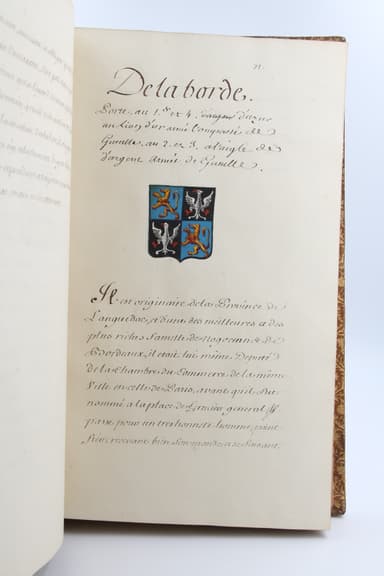 Delaborde.
Porte, au 1.er et 4. d'azur
au Lion d'or armé Lampassé de
Gueulle, au 2. et 3. à l'aigle
d'argent armée de Gueulle.
Il est originaire de la Province de
Languedoc, et d'une des meilleures et des
plus riches famille de Negocians de
Bordeaux, il etoit lui même Deputé
de la Chambre du Commerce de la même
Ville en celle de Paris, avant qu'il fut
nommé à la place de Fermier general, Il
passe pour un tres honnête homme, point
fier, recevant bien Son monde, et se faisant